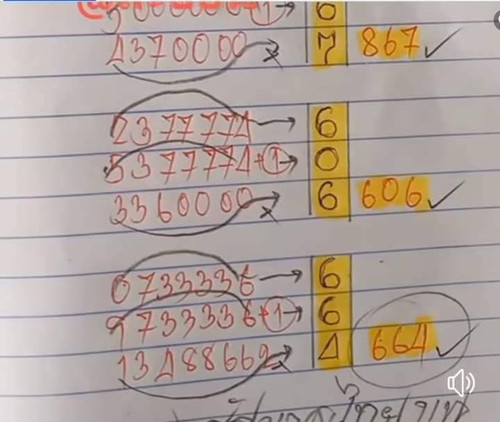 4370000 x 7 867 ✓
2377774 → 6
5377774+1 → 0
3360000 x 6 606 ✓
0733336 → 6
9733336+1 → 6
13488662 x 4 664 ✓